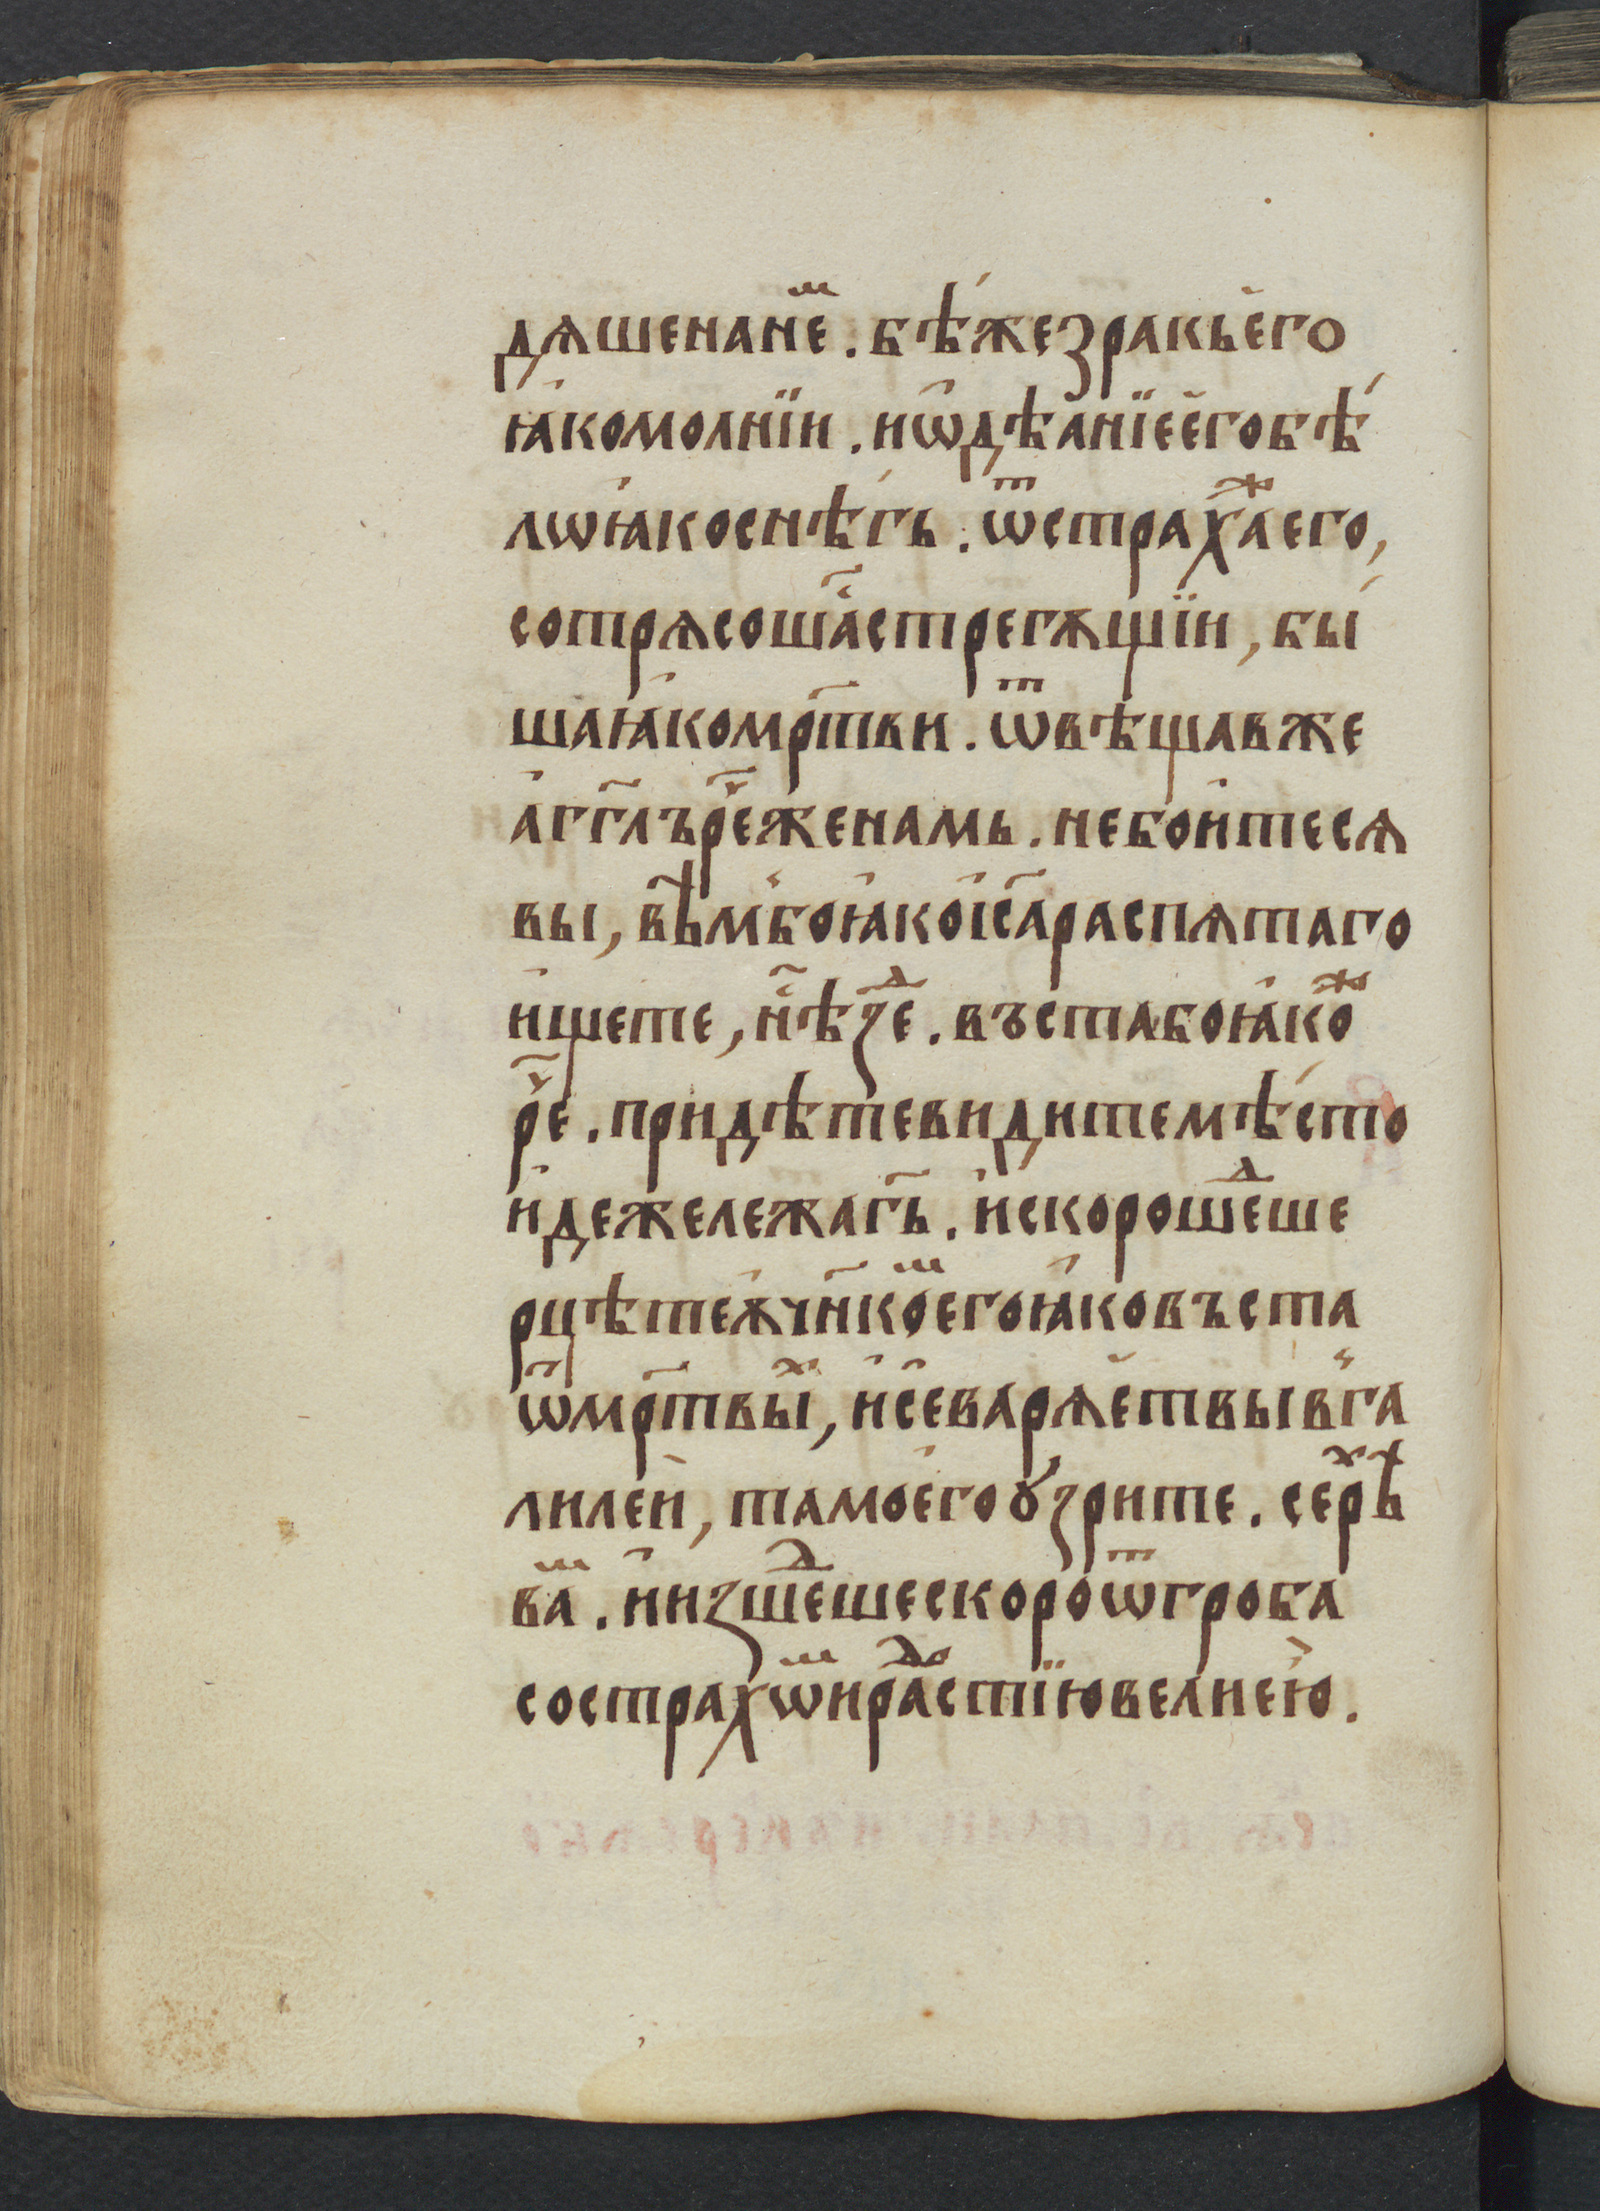 дѧшенанеⷨ҇. бѣ́жезракьего
ꙗ҆комолнїи. и҆ѡ҆дѣа҆нїее҆гобѣ́
лѡꙗ҆коснѣ́гь. ѿстрахаⷤего,
сотрѧсоша҇стрегѫщїи, бы́
шаꙗ҆комр҃тви. ѿвѣщавже
а҆гг҃лърⷱ҇еженамь. небои҆тесѧ
вы, вѣ҃мⸯбоꙗ҆коі҆с҃араспѧтаго
и҆щете, нⷭ҇ѣзⷣе. въстабоꙗ҆коⷤ
рⷱ҇е. придѣтевидитемѣ́сто
и҆дежележаг҃ь. и҆скорошеⷣше
рцѣтеѫ҆чн҃икоⷨего҆ꙗ҆ковъста
ѿмр҃твыⷯ, и҆се҆варѧе҆твывⸯга
лилеи, тамое҆гоꙋ́зрите. сереⷯѣⷯ
ваⷨ. и҆и҆зшеⷣшескороѿгроба
сострахѡⷨираⷣ҇стїювелиею҆.